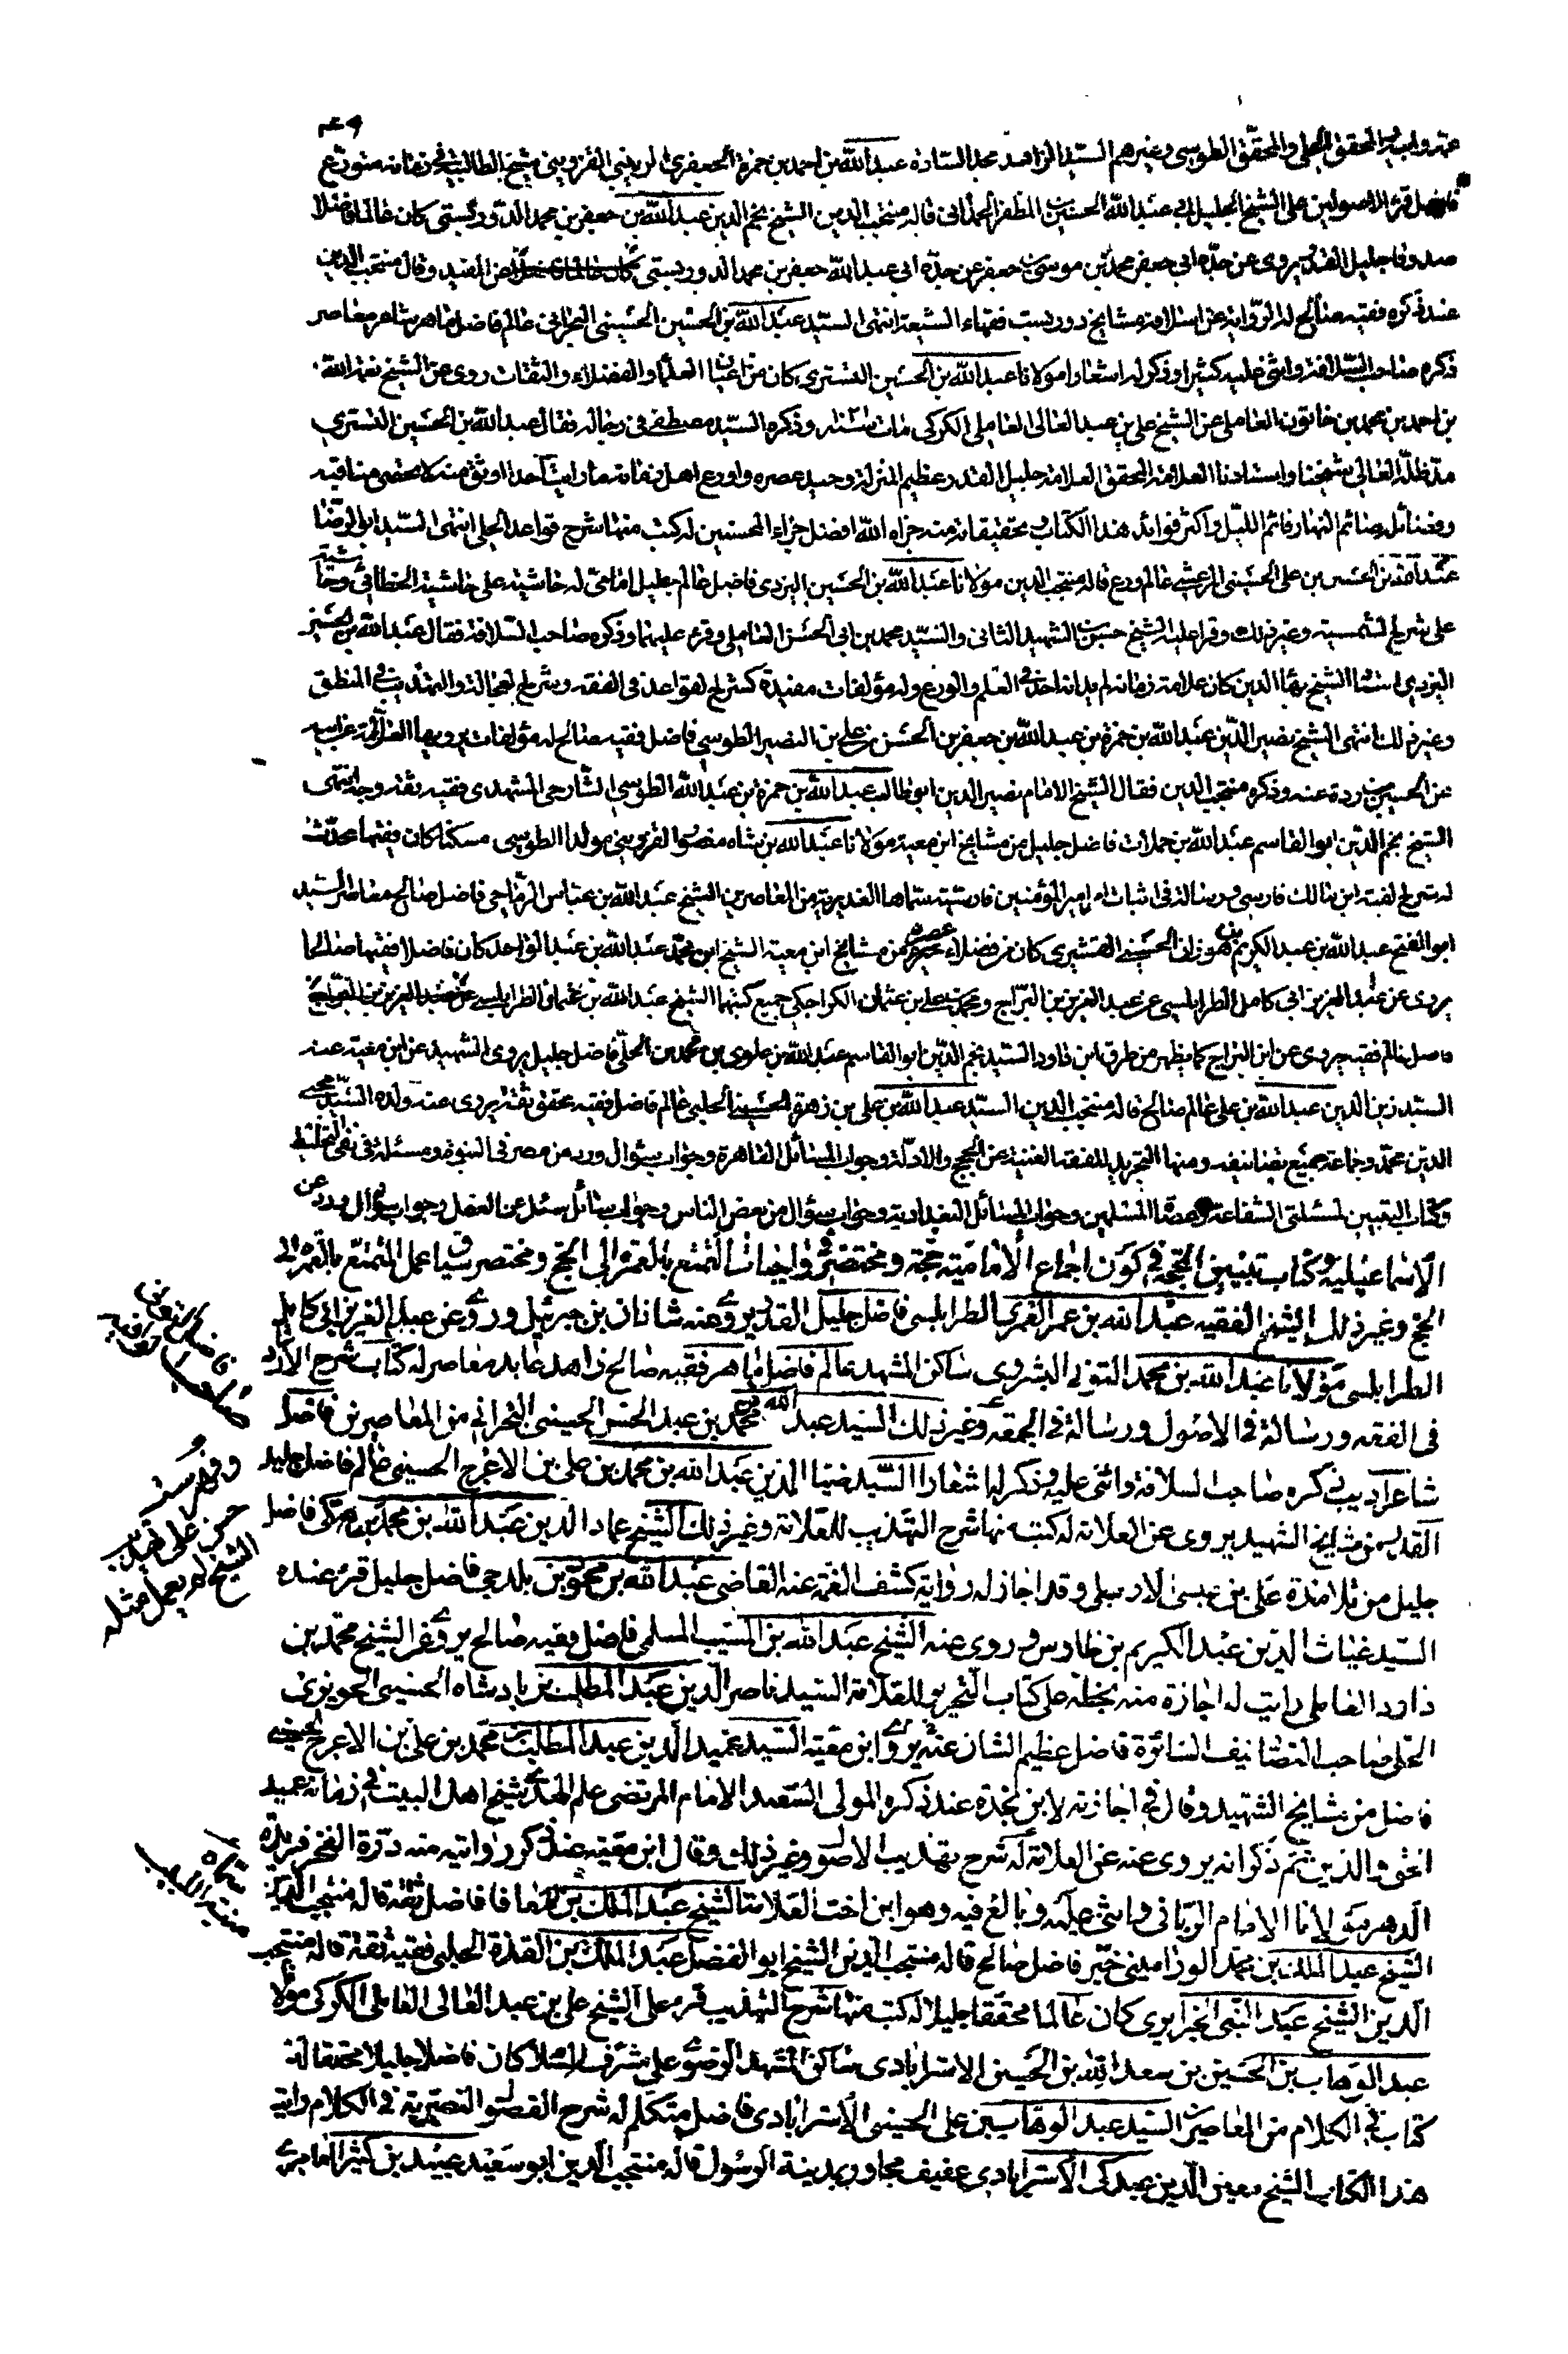 عنه ولده والمحقق الحلي والمحقق الطوسي وغيرهم السيد الزاهد مجد السادة عبد الله بن احمد بن حمزة الجعفري الزينبي القزويني شيخ الطالبية في زمانه متورع
فاضل قرء الاصولين على الشيخ الجليل ابي عبد الله الحسين بن المظفر الحمداني قاله منتجب الدين الشيخ نجم الدين عبد الله بن جعفر بن محمد الدوريستي كان عالما فاضلا
صدوقا جليل القدر يروى عن جده ابي جعفر محمد بن موسى بن جعفر عن جده ابي عبد الله جعفر بن محمد الدوريستي عن المفيد وقال منتجب الدين
عند ذكره فقيه صالح له الرواية عن اسلافه مشايخ دوريست فقهاء الشيعة انتهى السيد عبد الله بن الحسين الحسيني البحراني عالم فاضل ماهر شاعر معاصر
ذكره صاحب السلافة واثنى عليه كثيرا وذكر له اشعارا مولانا عبد الله بن الحسين التستري كان من اعيان العلماء والفضلاء والثقات روى عن الشيخ نعمة الله
بن احمد بن محمد بن خاتون العاملي عن الشيخ علي بن عبد العالى العاملي الكركي مات سنة وذكره السيد مصطفى في رجاله فقال عبد الله بن الحسين التستري
مد ظله العالى شيخنا واستادنا العلامة المحقق المدقق جليل القدر عظيم المنزلة وحيد عصره واورع اهل زمانه ما رايت احدا اوثق منه لا تحصى مناقبه
وفضائله صائم النهار قائم الليل واكثر فوائد هذا الكتاب وتحقيقاته منه جزاه الله افضل جزاء المحسنين له كتب منها شرح قواعد الحلي انتهى السيد ابو الرضا
عبد الله بن الحسين بن علي الحسيني المرعشي عالم ورع قاله منتجب الدين مولانا عبد الله بن الحسين اليزدي فاضل عالم جليل امامي له حاشية على حاشية الخطائي وحاشية
على شرح الشمسية وغير ذلك وقرا عليه الشيخ حسن بن الشهيد الثاني والسيد محمد بن ابي الحسن العاملي وقرء عليهما وذكره صاحب السلافة فقال عبد الله بن الحسين
اليزدي استاذ الشيخ بهاء الدين كان علامة زمانه لم يدانه احد في العلم والورع وله مؤلفات مفيدة كشرح القواعد في الفقه وشرح العجالة والتهذيب في المنطق
وغير ذلك انتهى الشيخ نصير الدين عبد الله بن حمزة بن عبد الله بن جعفر بن الحسن بن علي بن النصير الطوسي فاضل فقيه صالح له مؤلفات يرويها العلامة عن ابيه
عن الحسين بن ردة عنه وذكره منتجب الدين فقال الشيخ الامام نصير الدين ابو طالب عبد الله بن حمزة بن عبد الله الطوسي الشارحي المشهدي فقيه ثقة وجه انتهى
الشيخ نجم الدين ابو القاسم عبد الله بن حملات فاضل جليل من مشايخ ابن معية مولانا عبد الله بن شاه منصور القزويني مولدا الطوسي مسكنا كان فقيها محدثا
له شرح الفية ابن مالك فارسي ورسالة في اثبات امامة امير المؤمنين فارسية سماها الغديرية من المعاصرين الشيخ عبد الله بن عباس الرماحي فاضل صالح معاصر السيد
ابو الفتح عبد الله بن عبد الكريم بن هوزان الحسيني القشيري كان من فضلاء عصره من مشايخ ابن معية الشيخ ابن محمد عبد الله بن عبد الواحد كان فاضلا فقيها صالحا
يروى عن عبد العزيز ابي كامل الطرابلسي عن عبد العزيز بن البراج ومحمد بن علي بن عثمان الكراجكي جميع كتبهما الشيخ عبد الله بن عثمان الطرابلسي عن عبد العزيز بن البراج
فاضل عالم فقيه يروى عن ابن البراج كما يظهر من طرق ابن داود السيد نجم الدين ابو القاسم عبد الله بن علوي بن محمد بن الحلي فاضل جليل يروى الشهيد عن ابن معية عنه
السيد زين الدين عبد الله بن علي عالم صالح قاله منتجب الدين السيد عبد الله بن علي بن زهرة الحسيني الحلبي عالم فاضل فقيه محقق ثقة يروى عنه ولده السيد محيي
الدين محمد وجماعة جميع تصانيفه ومنها التجريد للفقه الغنية عن الحجج والادلة وجواب المسائل القاهرة وجواب سؤال ورد من مصر في النبوة ومسئلة في نفى التخليط
وكتاب التبيين لمسئلتى الشفاعة وعصاة المسلمين وجواب المسائل البغدادية وجواب سؤال من بعض الناس وجواب سائل سئل عن العقل وجواب سؤال ورد عن
الاسماعيلية وكتاب تبيين المحجة في كون اجماع الامامية حجة ومختصر في واجبات التمتع بالعمرة الى الحج ومختصر سياق عمل المتمتع بالعمرة الى
الحج وغير ذلك الشيخ الفقيه عبد الله بن عمر العمري الطرابلسي فاضل جليل القدر يروى عنه شاذان بن جبرئيل وروى عن عبد العزيز ابي كامل
الطرابلسي مولانا عبد الله بن محمد التوني البشروي ساكن المشهد عالم فاضل ماهر فقيه صالح زاهد عابد معاصر له كتاب شرح الارشاد
في الفقه ورسالة في الاصول ورسالة في الجمعه وغير ذلك السيد عبد الله بن محمد بن عبد الحسين الحسيني البحراني من المعاصرين فاضل
شاعر اديب ذكره صاحب السلافة واثنى عليه وذكر له اشعارا السيد ضياء الدين عبد الله بن محمد بن علي بن الاعرج الحسيني عالم فاضل جليل
القدر من مشايخ الشهيد يروى عن العلامة له كتب منها شرح التهذيب للعلامة وغير ذلك الشيخ عماد الدين عبد الله بن محمد بن مكي فاضل
جليل من تلامذة علي بن عيسى الاربلي وقد اجاز له رواية كشف الغمة عنه القاضي عبد الله بن محمود بن بلدجي فاضل جليل قرء عنده
السيد غياث الدين عبد الكريم بن طاوس وروى عنه الشيخ عبد الله بن المسيب المسلمي فاضل فقيه صالح يروى عن الشيخ محمد بن
داود العاملي رايت له اجازة منه بخطه على كتاب التحرير للعلامة السيد ناصر الدين عبد المطلب بن بادشاه الحسيني الحويزي
الحلي صاحب التصانيف السائرة فاضل عظيم الشان عنه يروى ابن معية السيد عميد الدين عبد المطلب بن محمد بن علي بن الاعرج الحسيني
فاضل من مشايخ الشهيد وقال في اجازته لابن نجدة عند ذكره المولى السعيد الامام المرتضى علم الهدى شيخ اهل البيت في زمانه عميد
الحق والدين ثم ذكر انه يروى عنه عن العلامة له شرح تهذيب الاصول وغير ذلك وقال ابن معية عند ذكر روايته منه درة الفخر فريدة
الدهر مولانا الامام الرباني واثنى عليه وبالغ فيه وهو ابن اخت العلامة الشيخ عبد الملك بن فاضل ثقة قاله منتجب الدين
الشيخ عبد الملك بن محمد الوراميني خير فاضل صالح قاله منتجب الدين الشيخ ابو الفضل عبد الملك بن القدرة الحلبي فقيه ثقة قاله منتجب
الدين الشيخ عبد النبي الجزايري كان عالما محققا جليلا له كتب منها شرح التهذيب قرء على الشيخ علي بن عبد العالى العاملي الكركي مولانا
عبد الوهاب بن الحسين بن سعد الله بن الحسين الاسترابادي ساكن المشهد الرضوي على مشرفه السلام كان فاضلا جليلا محققا له
كتاب في الكلام من المعاصرين السيد عبد الوهاب بن علي الحسيني الاسترابادي فاضل متكلم له شرح الفصول النصيرية في الكلام رايته
هذا الكتاب الشيخ معين الدين عبدكي الاسترابادي عفيف مجاور بمدينة الرسول قاله منتجب الدين ابو سعيد عبيد بن كثير العامري
وفهرست
حسن على تهذيب
الشيخ لم يعمل مثله
منية اللبيب